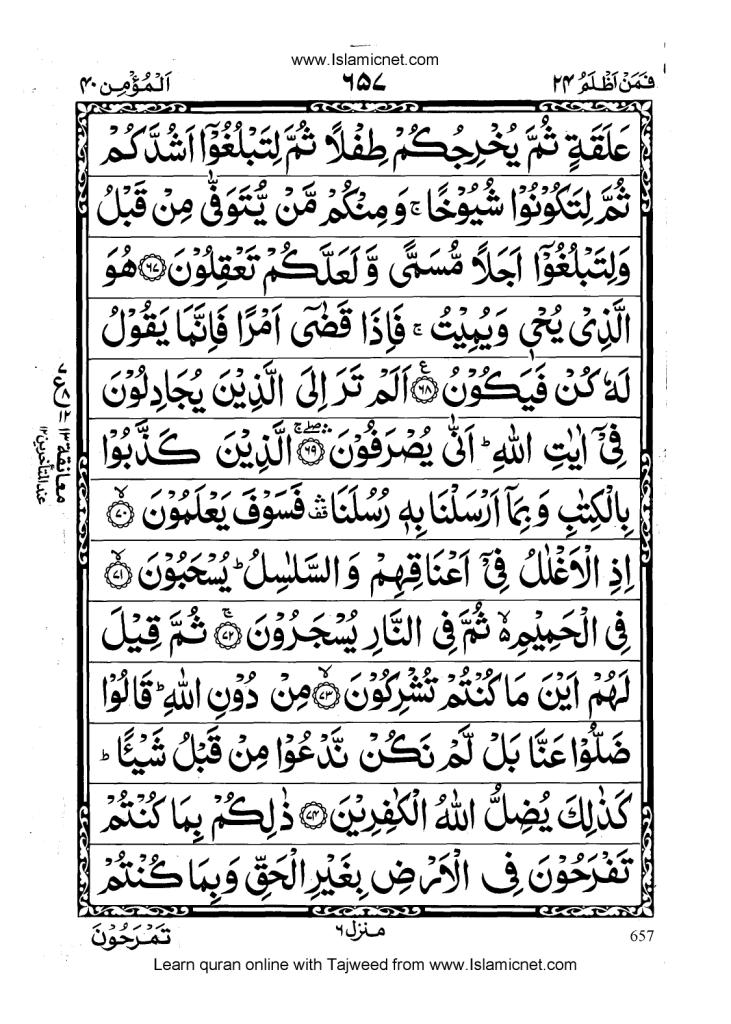 www.Islamicnet.com
فَمَنْ اَظْلَمُ ٢٤
٦٥٧
اَلْمُؤْمِن ٤٠
عَلَقَةٍ ثُمَّ يُخْرِجُكُمْ طِفْلًا ثُمَّ لِتَبْلُغُوْٓا اَشُدَّكُمْ
ثُمَّ لِتَكُوْنُوْا شُيُوْخًا ۚ وَمِنْكُمْ مَّنْ يُّتَوَفّٰى مِنْ قَبْلُ
وَلِتَبْلُغُوْٓا اَجَلًا مُّسَمًّى وَّ لَعَلَّكُمْ تَعْقِلُوْنَ ۝٦٧ هُوَ
الَّذِيْ يُحْيٖ وَيُمِيْتُ ۚ فَاِذَا قَضٰٓى اَمْرًا فَاِنَّمَا يَقُوْلُ
لَهٗ كُنْ فَيَكُوْنُ ۝٦٨ ع اَلَمْ تَرَ اِلَى الَّذِيْنَ يُجَادِلُوْنَ
فِيْٓ اٰيٰتِ اللّٰهِ ؕ اَنّٰى يُصْرَفُوْنَ ۝٦٩ۛۚ الَّذِيْنَ كَذَّبُوْا
بِالْكِتٰبِ وَ بِمَآ اَرْسَلْنَا بِهٖ رُسُلَنَا ۛ فَسَوْفَ يَعْلَمُوْنَ ۝٧٠ۙ
اِذِ الْاَغْلٰلُ فِيْٓ اَعْنَاقِهِمْ وَ السَّلٰسِلُ ؕ يُسْحَبُوْنَ ۝٧١ۙ
فِي الْحَمِيْمِ ەۙ ثُمَّ فِي النَّارِ يُسْجَرُوْنَ ۝٧٢ۚ ثُمَّ قِيْلَ
لَهُمْ اَيْنَ مَا كُنْتُمْ تُشْرِكُوْنَ ۝٧٣ۙ مِنْ دُوْنِ اللّٰهِ ؕ قَالُوْا
ضَلُّوْا عَنَّا بَلْ لَّمْ نَكُنْ نَّدْعُوْا مِنْ قَبْلُ شَيْـًٔا ؕ
كَذٰلِكَ يُضِلُّ اللّٰهُ الْكٰفِرِيْنَ ۝٧٤ ذٰلِكُمْ بِمَا كُنْتُمْ
تَفْرَحُوْنَ فِي الْاَرْضِ بِغَيْرِ الْحَقِّ وَبِمَا كُنْتُمْ
معانقة ١٣
عند المتأخرين ١٢
منزل ٦
تَمْرَحُوْنَ
657
Learn quran online with Tajweed from www.Islamicnet.com